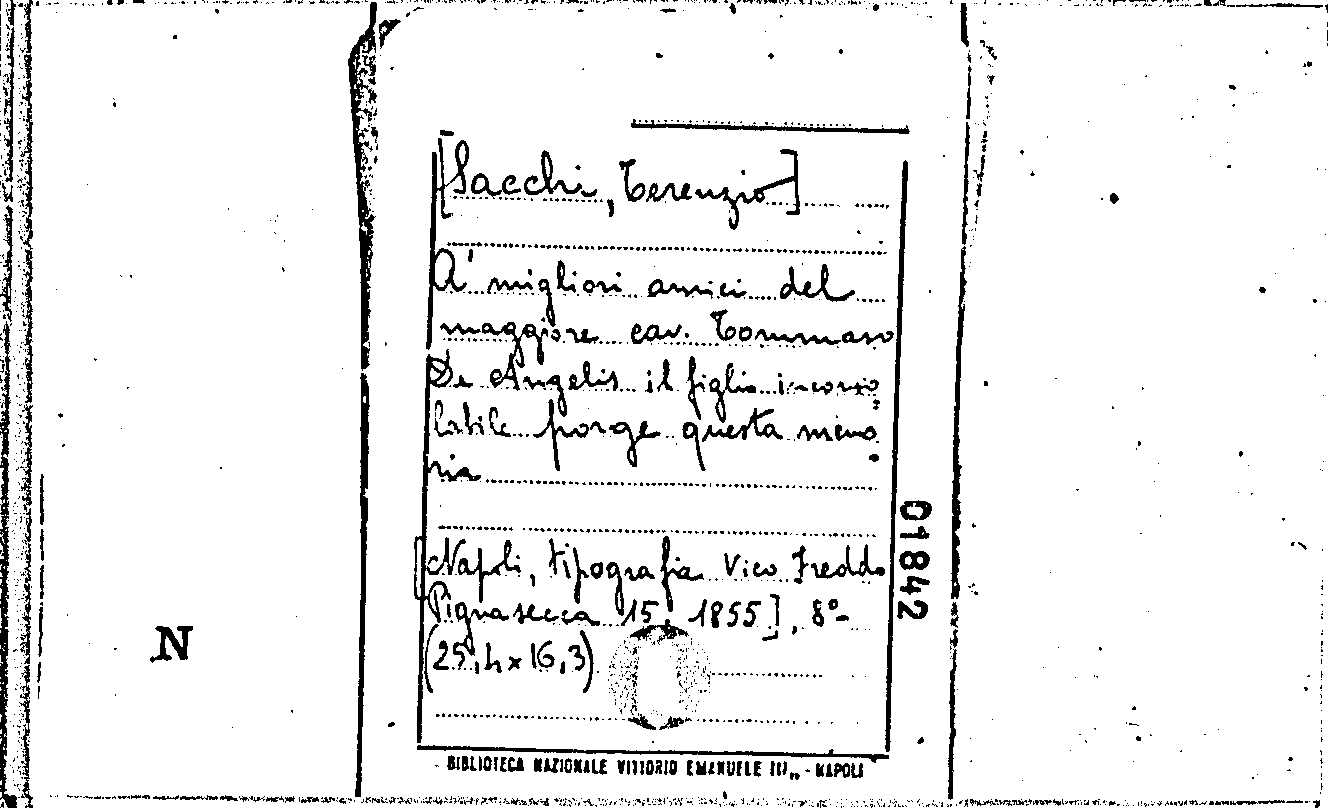 [Sacchi, Terenzio]
A' migliori amici del
maggiore cav. Tommaso
De Angelis il figlio inconso
labile porge questa memo
ria
[Napoli, tipografia Vico Freddo
Pignasecca 15, 1855], 8°-
(25,4x16,3)
01842
N
BIBLIOTECA NAZIONALE VITTORIO EMANUELE III„ - NAPOLI